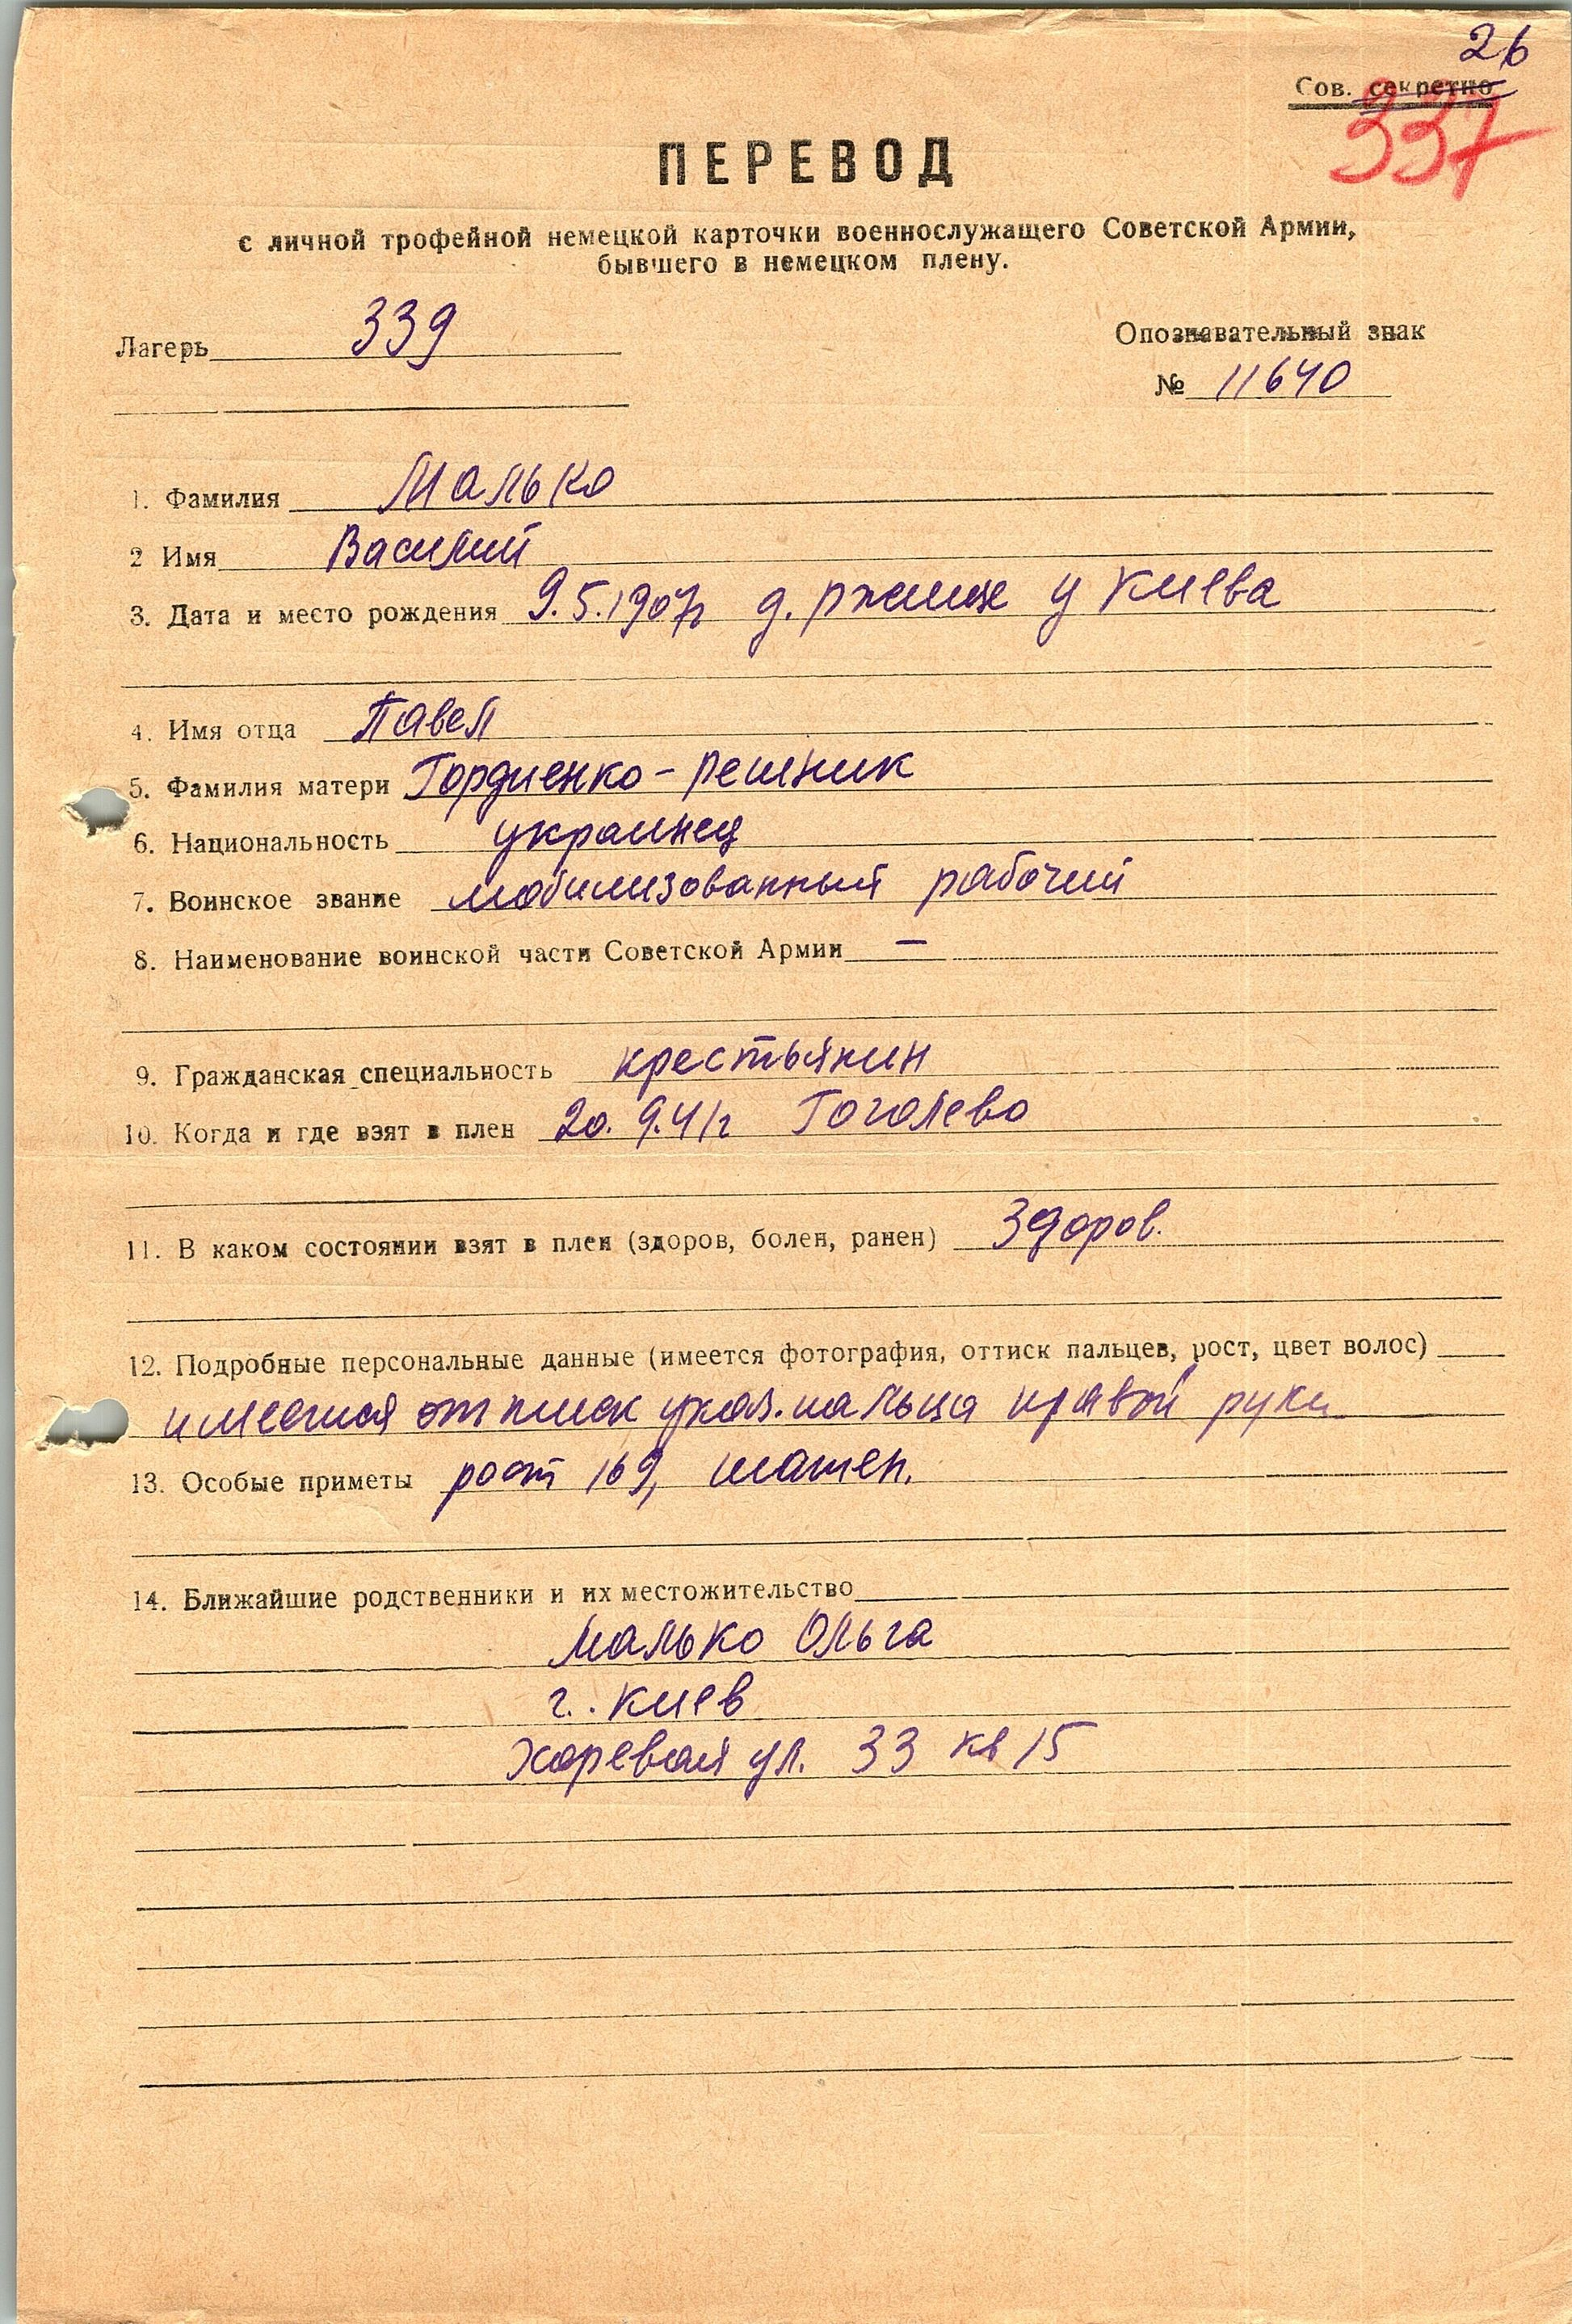 26
Сов. секретно
337
ПЕРЕВОД
с личной трофейной немецкой карточки военнослужащего Советской Армии,
бывшего в немецком плену.
Лагерь 339
Опознавательный знак
№ 11640
1. Фамилия Малько
2 Имя Василий
3. Дата и место рождения 9.5.1907г д. Ржище у Киева
4. Имя отца Павел
5. Фамилия матери Гордиенко-Решник
6. Национальность украинец
7. Воинское звание мобилизованный рабочий
8. Наименование воинской части Советской Армии —
9. Гражданская специальность крестьянин
10. Когда и где взят в плен 20.9.41г Гоголево
11. В каком состоянии взят в плен (здоров, болен, ранен) Здоров.
12. Подробные персональные данные (имеется фотография, оттиск пальцев, рост, цвет волос)
имеется оттиск указ. пальца правой руки
13. Особые приметы рост 169, шатен.
14. Ближайшие родственники и их местожительство
Малько Ольга
г. Киев
Хоревая ул. 33 кв 15